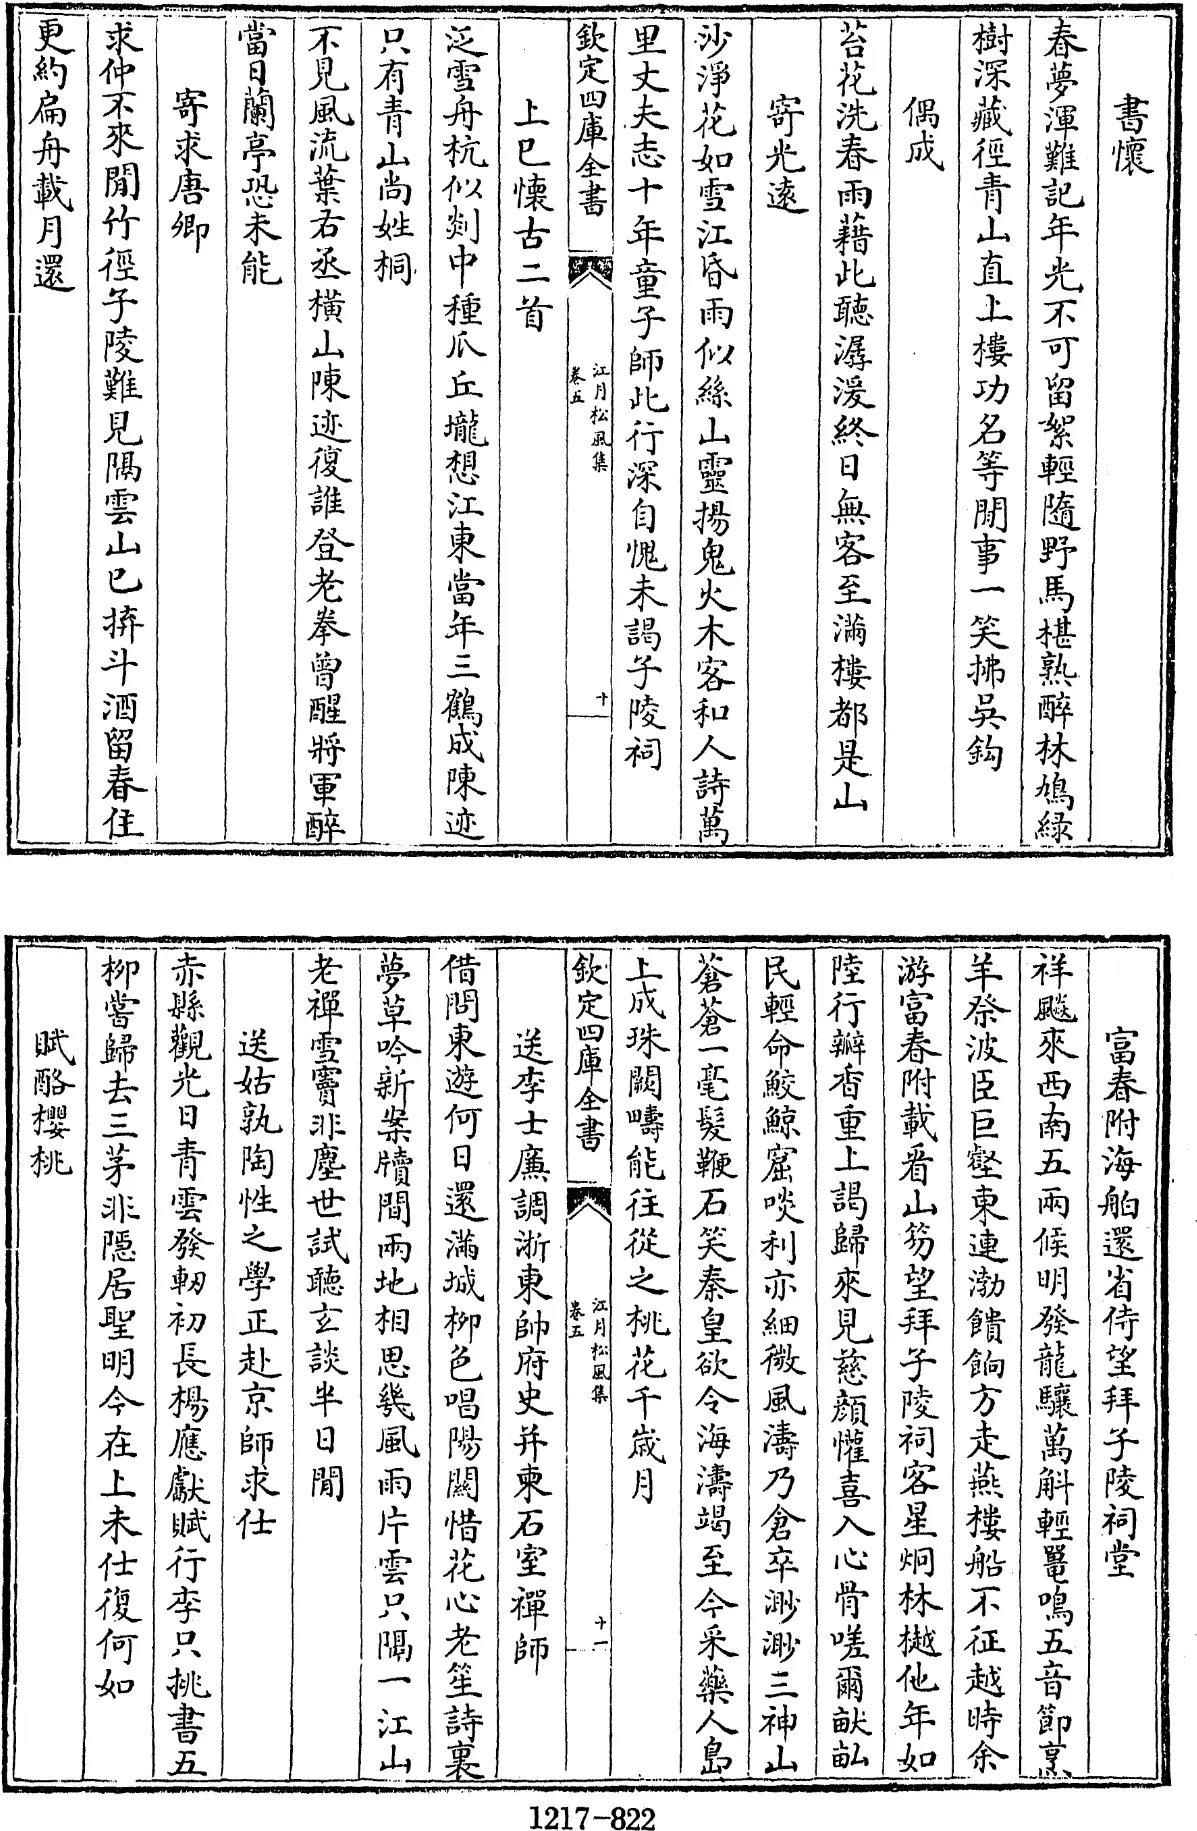 書懷
春夢渾難記年光不可留絮輕隨野馬椹熟醉林鳩緑
樹深藏徑青山直上樓功名等閒事一笑拂吳鈎
偶成
苔花洗春雨藉此聽潺湲終日無客至滿樓都是山
寄光遠
沙淨花如雪江昏雨似絲山靈揚鬼火木客和人詩萬
里丈夫志十年童子師此行深自愧未謁子陵祠
欽定四庫全書
江月松風集
卷五
十
上巳懷古二首
泛雪舟杭似剡中種瓜丘壠想江東當年三鶴成陳迹
只有青山尚姓桐
不見風流葉右丞横山陳迹復誰登老拳曾醒將軍醉
當日蘭亭恐未能
寄求唐卿
求仲不來閒竹徑子陵難見隔雲山已拚斗酒留春住
更約扁舟載月還
富春附海舶還省侍望拜子陵祠堂
祥飇來西南五兩候明發龍驤萬斛輕鼍鳴五音節烹
羊祭波臣巨壑東連渤饋餉方走燕樓船不征越時余
游富春附載看山笏望拜子陵祠客星炯林樾他年如
陸行瓣香重上謁歸來見慈顔懽喜入心骨嗟爾畎畝
民輕命鮫鯨窟啖利亦細微風濤乃倉卒渺渺三神山
蒼蒼一毫髮鞭石笑秦皇欲令海濤竭至今采藥人島
上成珠闕疇能往從之桃花千歲月
欽定四庫全書
江月松風集
卷五
十一
送李士廉調浙東帥府史并柬石室禪師
借問東遊何日還滿城柳色唱陽關惜花心老笙詩裏
夢草吟新案牘間兩地相思幾風雨片雲只隔一江山
老禪雪竇非塵世試聽玄談半日閒
送姑孰陶性之學正赴京師求仕
赤縣觀光日青雲發軔初長楊應獻賦行李只挑書五
柳嘗歸去三茅非隱居聖明今在上未仕復何如
賦酪櫻桃
1217-822